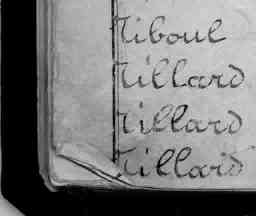 Tiboul
Tillard
Tillard
Tillard